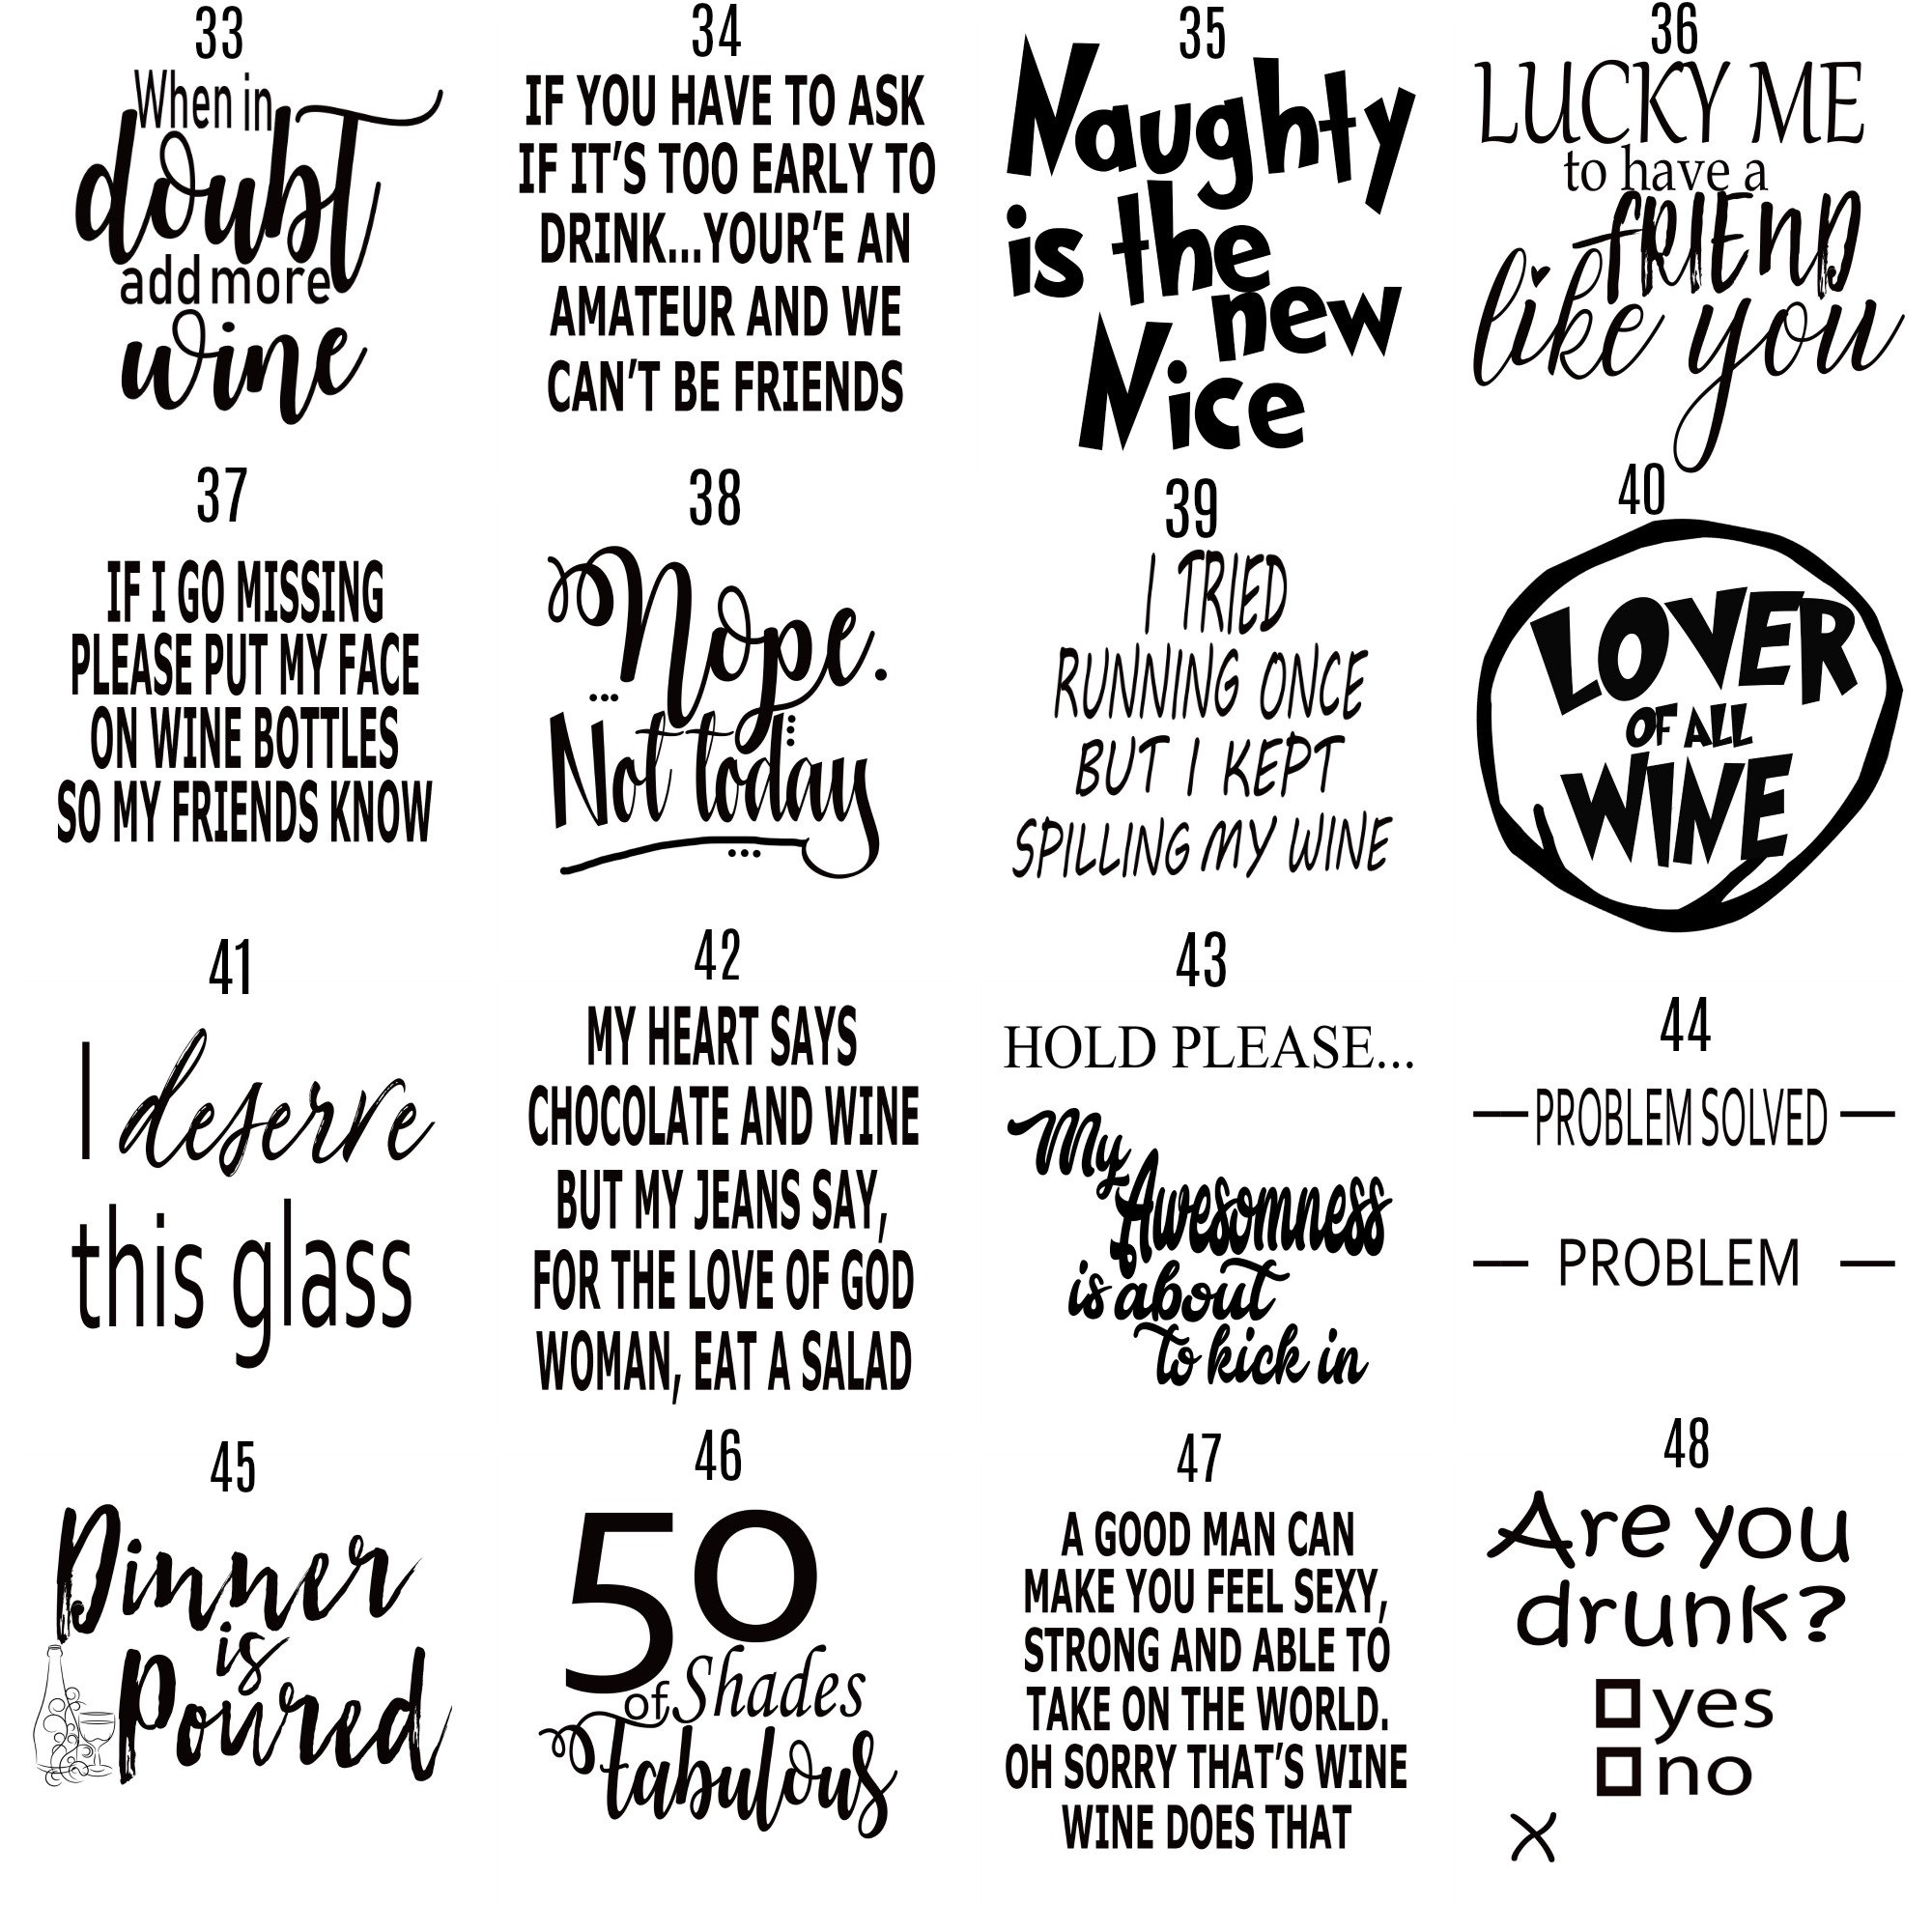 33
When in
doubt
add more
wine
34
IF YOU HAVE TO ASK
IF IT'S TOO EARLY TO
DRINK...YOUR'E AN
AMATEUR AND WE
CAN'T BE FRIENDS
35
Naughty
is the
new
Nice
36
LUCKY ME
to have a
FRIEND
like you
37
IF I GO MISSING
PLEASE PUT MY FACE
ON WINE BOTTLES
SO MY FRIENDS KNOW
38
Nope.
...Not today...
39
I TRIED
RUNNING ONCE
BUT I KEPT
SPILLING MY WINE
40
LOVER
OF ALL
WINE
41
I deserve
this glass
42
MY HEART SAYS
CHOCOLATE AND WINE
BUT MY JEANS SAY,
FOR THE LOVE OF GOD
WOMAN, EAT A SALAD
43
HOLD PLEASE...
My
Awesomness
is about
to kick in
44
— PROBLEM SOLVED —
— PROBLEM —
45
Dinner
is
Poured
46
50
of Shades
fabulous
47
A GOOD MAN CAN
MAKE YOU FEEL SEXY,
STRONG AND ABLE TO
TAKE ON THE WORLD.
OH SORRY THAT'S WINE
WINE DOES THAT
48
Are you
drunk?
yes
no
X